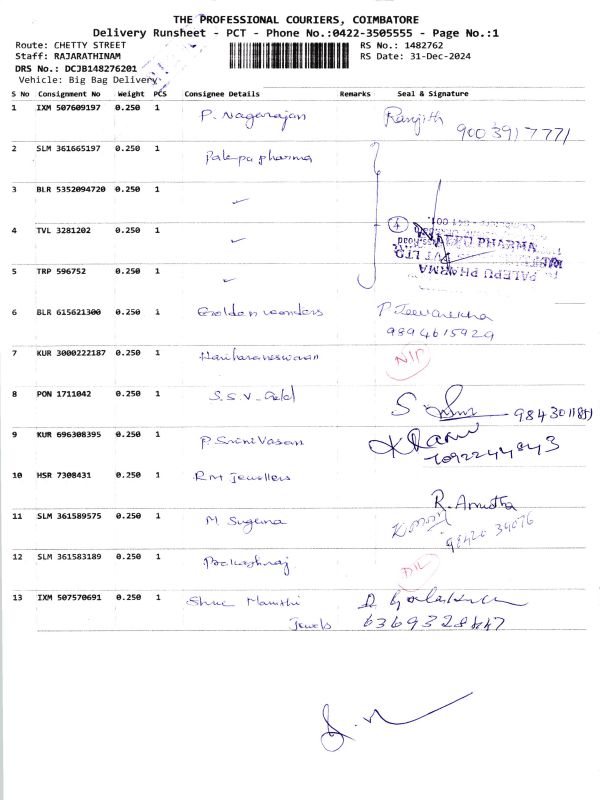 THE PROFESSIONAL COURIERS, COIMBATORE
Delivery Runsheet - PCT - Phone No.:0422-3505555 - Page No.:1
Route: CHETTY STREET RS No.: 1482762
Staff: RAJARATHINAM RS Date: 31-Dec-2024
DRS No.: DCJB148276201
Vehicle: Big Bag Delivery
S No Consignment No Weight PCS Consignee Details Remarks Seal & Signature
1 IXM 507609197 0.250 1 P. Nagarajan Ranjith
9003917771
2 SLM 361665197 0.250 1 Palepu pharma
3 BLR 5352094720 0.250 1
4 TVL 3281202 0.250 1 4
PALEPU PHARMA
5 TRP 596752 0.250 1
6 BLR 615621300 0.250 1 Golden wonders P. Jeevarekha
9894615929
7 KUR 3000222187 0.250 1 Hariharaneswaran
8 PON 1711042 0.250 1 S.S.V. Gold
9 KUR 696308395 0.250 1 P Srinivasan
10 HSR 7308431 0.250 1 RM Jewellers
R. Amutha
11 SLM 361589575 0.250 1 M. Suguna
98420 34076
12 SLM 361583189 0.250 1 Prakashraj
13 IXM 507570691 0.250 1 Shree
Jewels